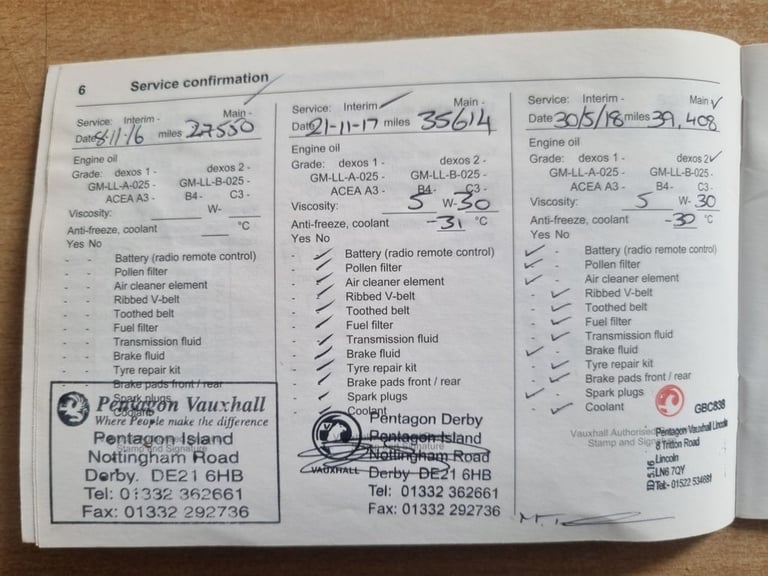 6 Service confirmation
Service: Interim - Main -
Date 8-11-16 miles 27550
Engine oil
Grade: dexos 1 - dexos 2 -
GM-LL-A-025 - GM-LL-B-025 -
ACEA A3 - B4 - C3 -
Viscosity: W-
Anti-freeze, coolant °C
Yes No
- - Battery (radio remote control)
- - Pollen filter
- - Air cleaner element
- - Ribbed V-belt
- - Toothed belt
- - Fuel filter
- - Transmission fluid
- - Brake fluid
- - Tyre repair kit
- - Brake pads front / rear
Spark plugs
Coolant
Stamp and Signature
Pentagon Vauxhall
Where People make the difference
Pentagon Island
Nottingham Road
Derby. DE21 6HB
Tel: 01332 362661
Fax: 01332 292736
Service: Interim ✓ Main -
Date 21-11-17 miles 35614
Engine oil
Grade: dexos 1 - dexos 2 -
GM-LL-A-025 - GM-LL-B-025 -
ACEA A3 - B4 - C3 -
Viscosity: 5 W- 30
Anti-freeze, coolant -31 °C
Yes No
- ✓ Battery (radio remote control)
- ✓ Pollen filter
- ✓ Air cleaner element
- ✓ Ribbed V-belt
- ✓ Toothed belt
- ✓ Fuel filter
- ✓ Transmission fluid
- ✓ Brake fluid
- ✓ Tyre repair kit
- ✓ Brake pads front / rear
- ✓ Spark plugs
- ✓ Coolant
VAUXHALL
Pentagon Derby
Pentagon Island
Nottingham Road
Derby DE21 6HB
Tel: 01332 362661
Fax: 01332 292736
Service: Interim - Main ✓
Date 30/5/18 miles 39,408
Engine oil
Grade: dexos 1 - dexos 2 ✓
GM-LL-A-025 - GM-LL-B-025 -
ACEA A3 - B4- C3 -
Viscosity: 5 W- 30
Anti-freeze, coolant -30 °C
Yes No
✓ - Battery (radio remote control)
✓ - Pollen filter
✓ - Air cleaner element
- ✓ Ribbed V-belt
- ✓ Toothed belt
- ✓ Fuel filter
- ✓ Transmission fluid
✓ - Brake fluid
- ✓ Tyre repair kit
- ✓ Brake pads front / rear
✓ - Spark plugs
- ✓ Coolant
GBC838
Vauxhall Authorised
Stamp and Signature
Pentagon Vauxhall Lincoln
8 Tritton Road
Lincoln
LN6 7QY
Tel:- 01522 534681